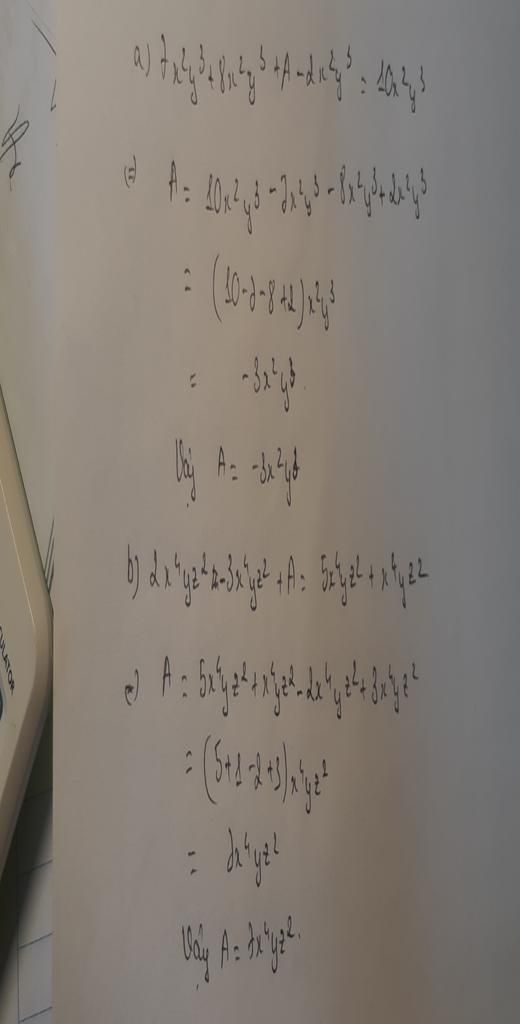 a) 7x²y³ + 8x²y³ + A - 2x²y³ = 10x²y³
(=) A = 10x²y³ - 7x²y³ - 8x²y³ + 2x²y³
= (10 - 7 - 8 + 2)x²y³
= -3x²y³.
Vậy A = -3x²y³
b) 2x⁴yz² - 3x⁴yz² + A = 5x⁴yz² + x⁴yz²
(=) A = 5x⁴yz² + x⁴yz² - 2x⁴yz² + 3x⁴yz²
= (5 + 1 - 2 + 3)x⁴yz²
= 7x⁴yz²
Vậy A = 7x⁴yz².
ULATOR